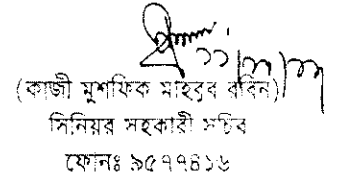 (কাজী মুশফিক মাহবুব রবিন)
সিনিয়র সহকারী সচিব
ফোনঃ ৯৫৭৭৪১৬